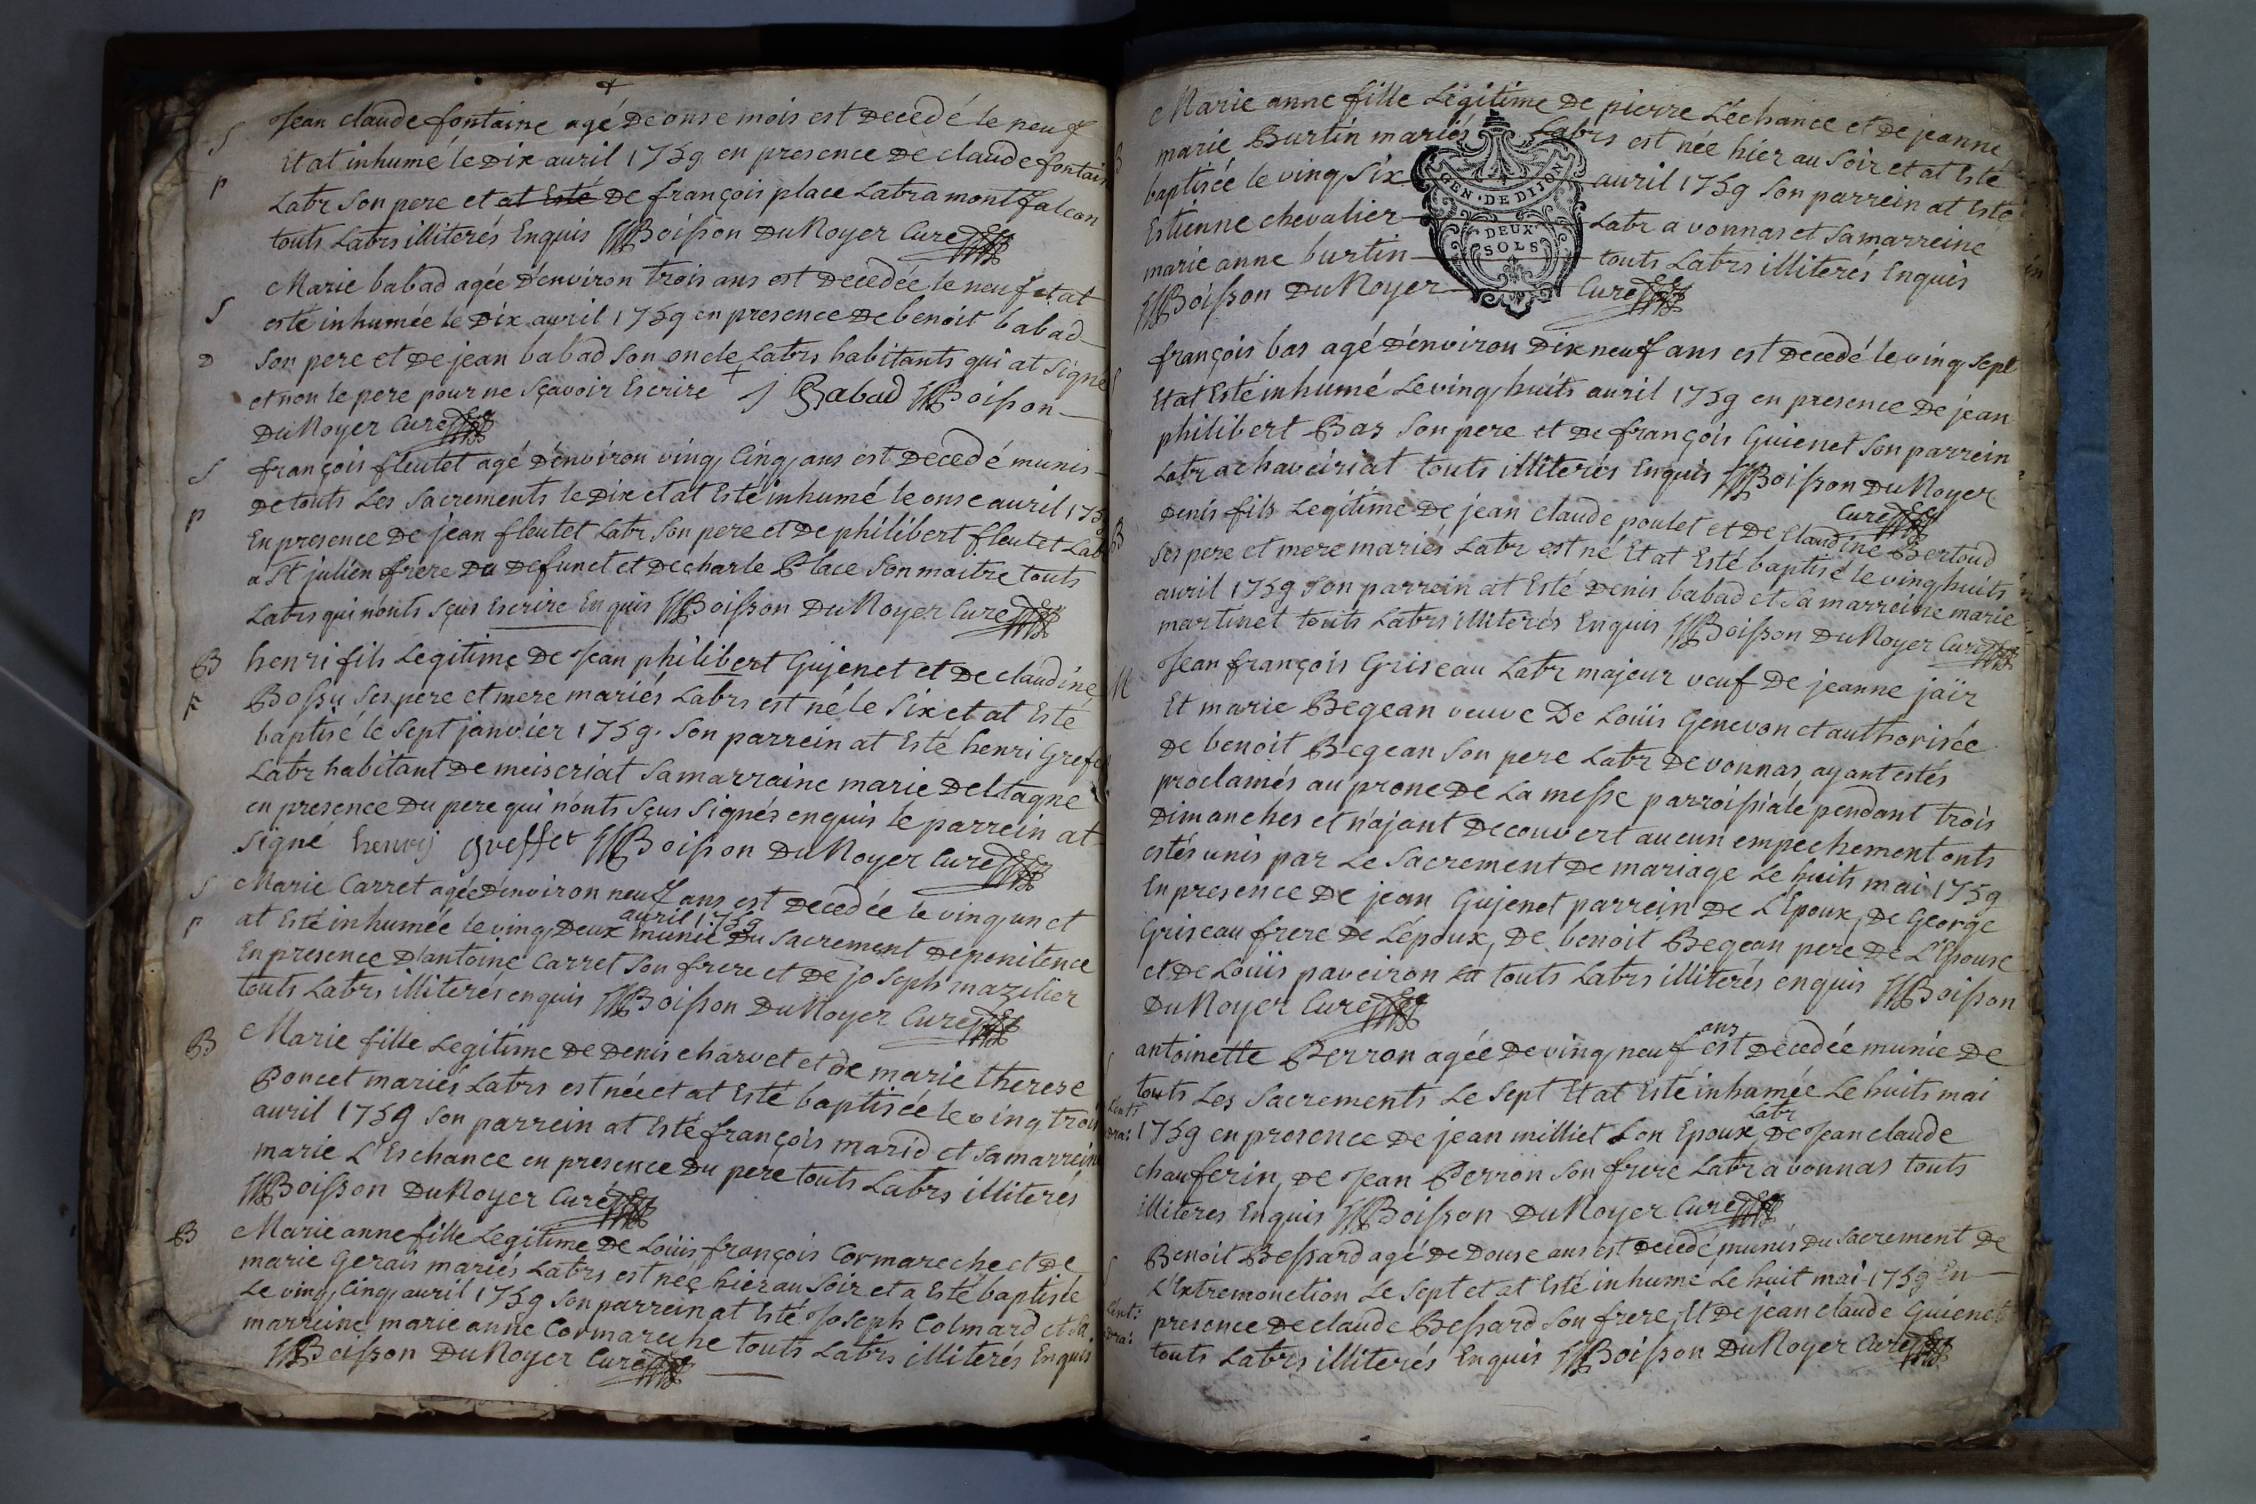 Jean claude fontaine agé De onse mois est Decedé le neuf
Et at inhumé le Dix auril 1759 en presence De claude fontain
Labr Son pere et at Esté De françois place Labr a montfalcon
touts Labrs illiterés Enquis Boisson DuNoyer Curé
Marie babad agée D'environ trois ans est Decedée le neuf et at
esté inhumée le Dix auril 1759 en presence De benoit babad
Son pere et De jean babad Son oncle Labrs habitants qui at Signé
et non le pere pour ne Sçavoir Escrire J Babad Boisson
DuNoyer Curé
françois fleutet agé D'environ ving, Cinq, ans est Decedé munis
De touts Les Sacrements le Dix et at Esté inhumé le onse auril 1759
En presence De jean fleutet Labr Son pere et De philibert fleutet Lab
a St julien frere Du Defunct et De charle Place Son maitre touts
Labrs qui n'onts Sçus Escrire Enquis Boisson DuNoyer Curé
henri fils Legitime De Jean philibert Gujenet et De claudine
Bossu Ses pere et mere mariés Labrs est né le Six et at Esté
baptisé le Sept janvier 1759. Son parrein at Esté henri Grefe
Labr habitant De meiseriat Sa marraine marie Deltagne
en presence Du pere qui n'onts Sçus Signés enquis le parrein at
Signé henrij greffet Boisson DuNoyer Curé
Marie Carret agée D'environ neuf ans est Decedée le ving, un et
auril 1759
at Esté inhumée le ving, Deux munie Du Sacrement De penitence
En presence D'antoine Carret Son frere et De joseph mazilier
touts Labrs illiterés enquis Boisson DuNoyer Curé
Marie fille Legitime De Denis charvet et De marie therese
Poncet mariés Labrs est née et at Esté baptisée le ving trois
auril 1759 Son parrein at Esté françois marid et Sa marreine
marie L'Eschance en presence Du pere touts Labrs illiterés
Boisson DuNoyer Curé
Marie anne fille Legitime De Loüis françois Cormareche et De
marie Gerais mariés Labrs est née hier au Soir et a Esté baptisée
Le ving, Cinq, auril 1759 Son parrein at Esté Joseph Colmard et Sa
marreine marie anne Cormareche touts Labrs illiterés Enquis
Boisson DuNoyer Curé
Marie anne fille Légitime De pierre L'échance et De jeanne
marie Burtin mariés Labrs est née hier au Soir et at Esté
baptisée le ving, Six auril 1759 Son parrein at Esté
Estienne chevalier Labr a vonnas et Sa marreine
marie anne burtin touts Labrs illiterés Enquis
Boisson DuNoyer Curé
GEN · DE DIJON
DEUX
SOLS
françois bas agé D'environ Dix neuf ans est Decedé le ving, Sept
Et at Esté inhumé Le ving, huits auril 1759 en presence De jean
philibert Bas Son pere et De françois Guienet Son parrein
Labr a chaveiriat touts illiterés Enquis Boisson DuNoyer
Curé
Denis fils Legitime De jean claude poulet et De claudine Bertoud
Ses pere et mere mariés Labr est né Et at Esté baptisé le ving huits
auril 1759 Son parrein at Esté Denis babad et Sa marreine marie
martinet touts Labrs illiterés Enquis Boisson DuNoyer Curé
Jean françois Griseau Labr majeur veuf De jeanne jaïr
Et marie Begean veuve De Loüis Genevon et authorisée
De benoit Begean Son pere Labr De vonnas, ayant estés
proclamés au prone De La messe parroissiale pendant trois
Dimanches et n'ajant Decouvert aucun empechement onts
estés unis par Le Sacrement De mariage Le huits mai 1759
En presence De jean Gujenet parrein De L'Epoux, De George
Griseau frere De L'époux, De benoit Begean pere De L'Epouse
et De Loüis paveiron La touts Labrs illiterés enquis Boisson
DuNoyer Curé
ans
antoinette Perron agée De ving, neuf est Decedée munie De
touts Les Sacrements Le Sept Et at Esté inhumée Le huits mai
Labr
1759 en presence De jean milliet Son Epoux, De Jean claude
chauferin, De Jean Perron Son frere Labr a vonnas touts
illiteres Enquis Boisson DuNoyer Curé
Benoit Bessard agé De Douse ans est Decedé, munis Du Sacrement De
L'Extremonction Le Sept et at Esté inhumé Le huit mai 1759 En
presence De claude Bessard Son frere, Et De jean claude Guienet
touts Labrs illiterés Enquis Boisson DuNoyer Curé